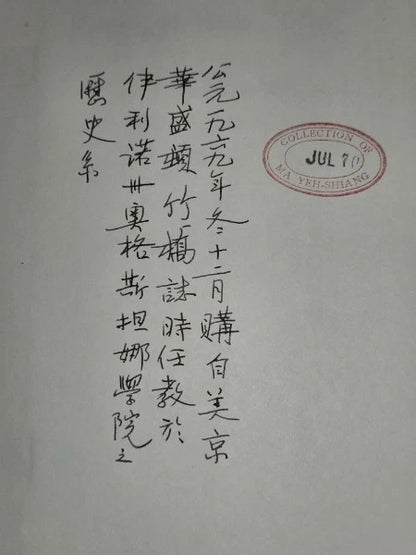 公元一九六九年冬十二月購自美京
華盛頓竹橋誌時任教於
伊利諾州奧格斯坦娜學院之
歷史系
COLLECTION OF
JUL 70
MA YEH-SHIANG